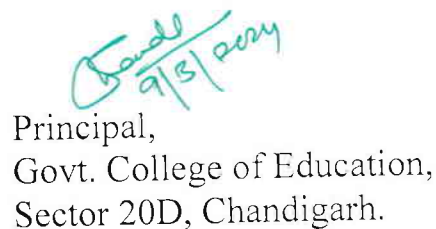 9/3/2024
Principal,
Govt. College of Education,
Sector 20D, Chandigarh.